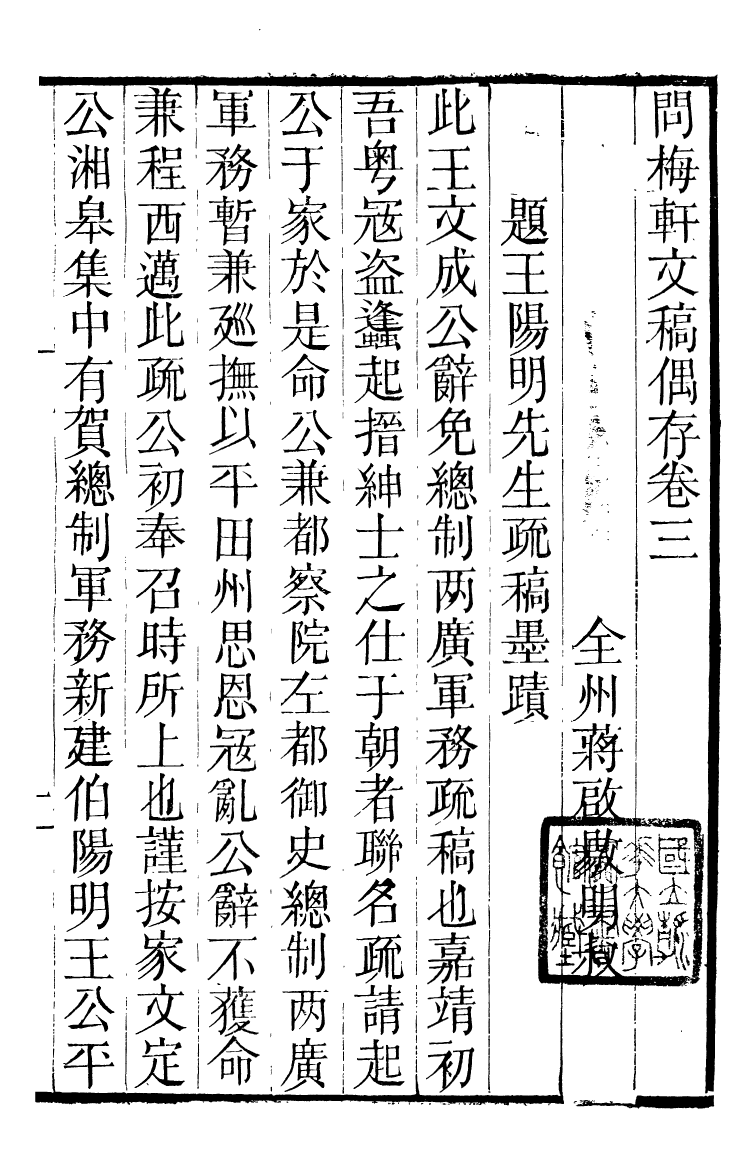 問梅軒文稿偶存卷三
全州蔣啟敭明叔
題王陽明先生疏稿墨蹟
此王文成公辭免總制两廣軍務疏稿也嘉靖初
吾粤冦盗蠭起搢紳士之仕于朝者聯名疏請起
公于家於是命公兼都察院左都御史總制两廣
軍務暫兼廵撫以平田州思恩冦亂公辭不獲命
兼程西邁此疏公初奉召時所上也謹按家文定
公湘皋集中有賀總制軍務新建伯陽明王公平